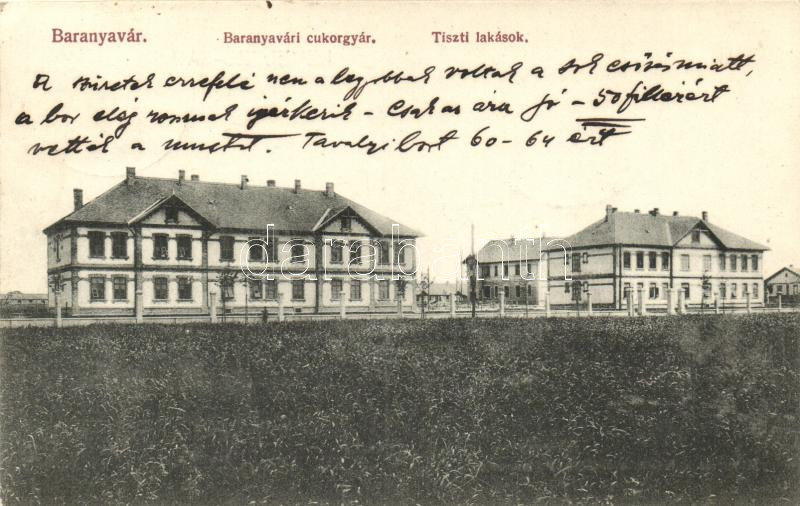 Baranyavár. Baranyavári cukorgyár. Tiszti lakások.
A szüretek errefelé nem a legjobbak voltak a sok csősz miatt,
a bor elég rossznak igérkezik - Csak az ára jó - 50 fillerért
vették a mustot. Tavalyi bort 60 - 64 ért
darabanth